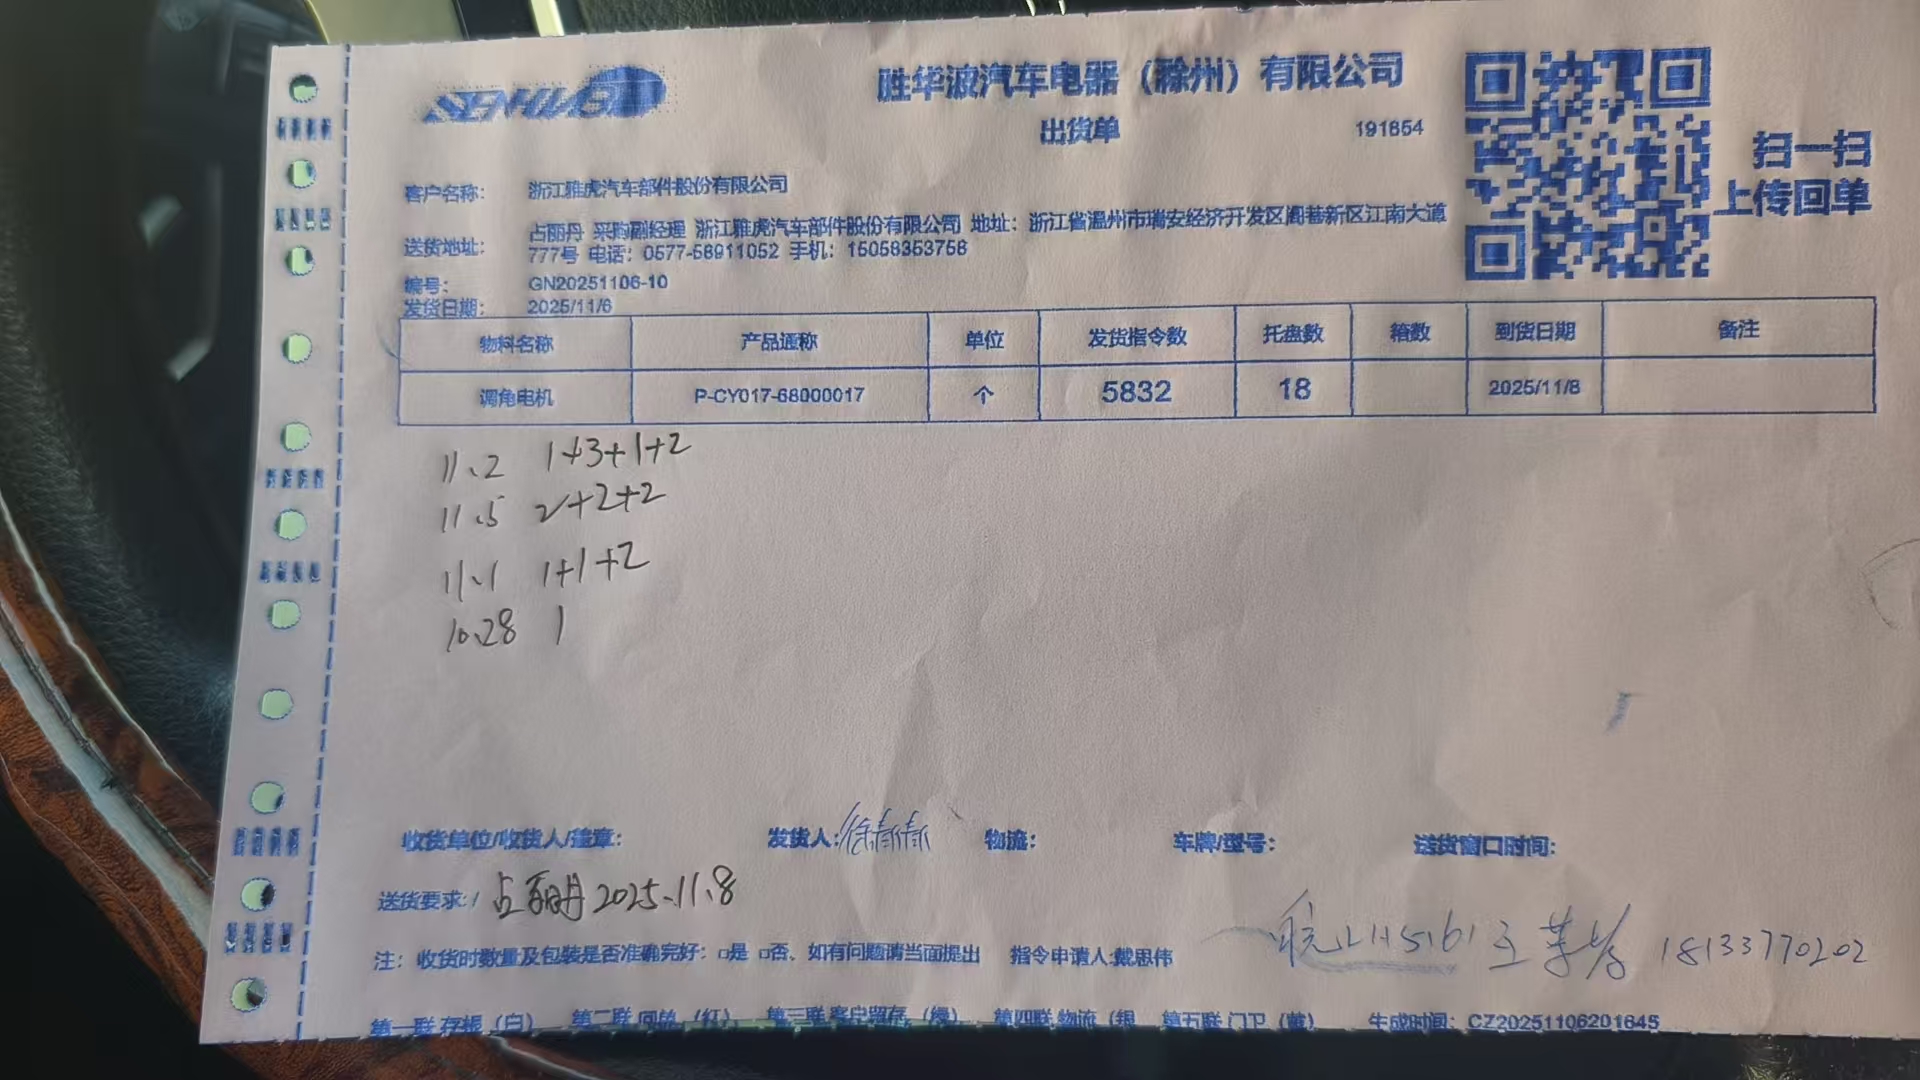 SENHWBO
胜华波汽车电器（滁州）有限公司
出货单
191854
扫一扫
上传回单
客户名称： 浙江雅虎汽车部件股份有限公司
送货地址： 占丽丹 采购副经理 浙江雅虎汽车部件股份有限公司 地址：浙江省温州市瑞安经济开发区阁巷新区江南大道
777号 电话：0577-58911052 手机：15058353758
编号： GN20251106-10
发货日期： 2025/11/6
物料名称 产品通称 单位 发货指令数 托盘数 箱数 到货日期 备注
调角电机 P-CY017-68000017 个 5832 18 2025/11/8
11.2 1+3+1+2
11.5 2+2+2
11.1 1+1+2
10.28 1
收货单位/收货人/盖章： 发货人： 物流： 车牌/型号： 送货窗口时间：
送货要求：/ 占丽丹 2025.11.8
18133770202
注：收货时数量及包装是否准确完好：□是 □否、如有问题请当面提出 指令申请人:戴思伟
第一联 存根（白） 第二联 回单（红） 第三联 客户留存（绿） 第四联 物流（银 第五联 门卫（黄） 生成时间：CZ20251106201645